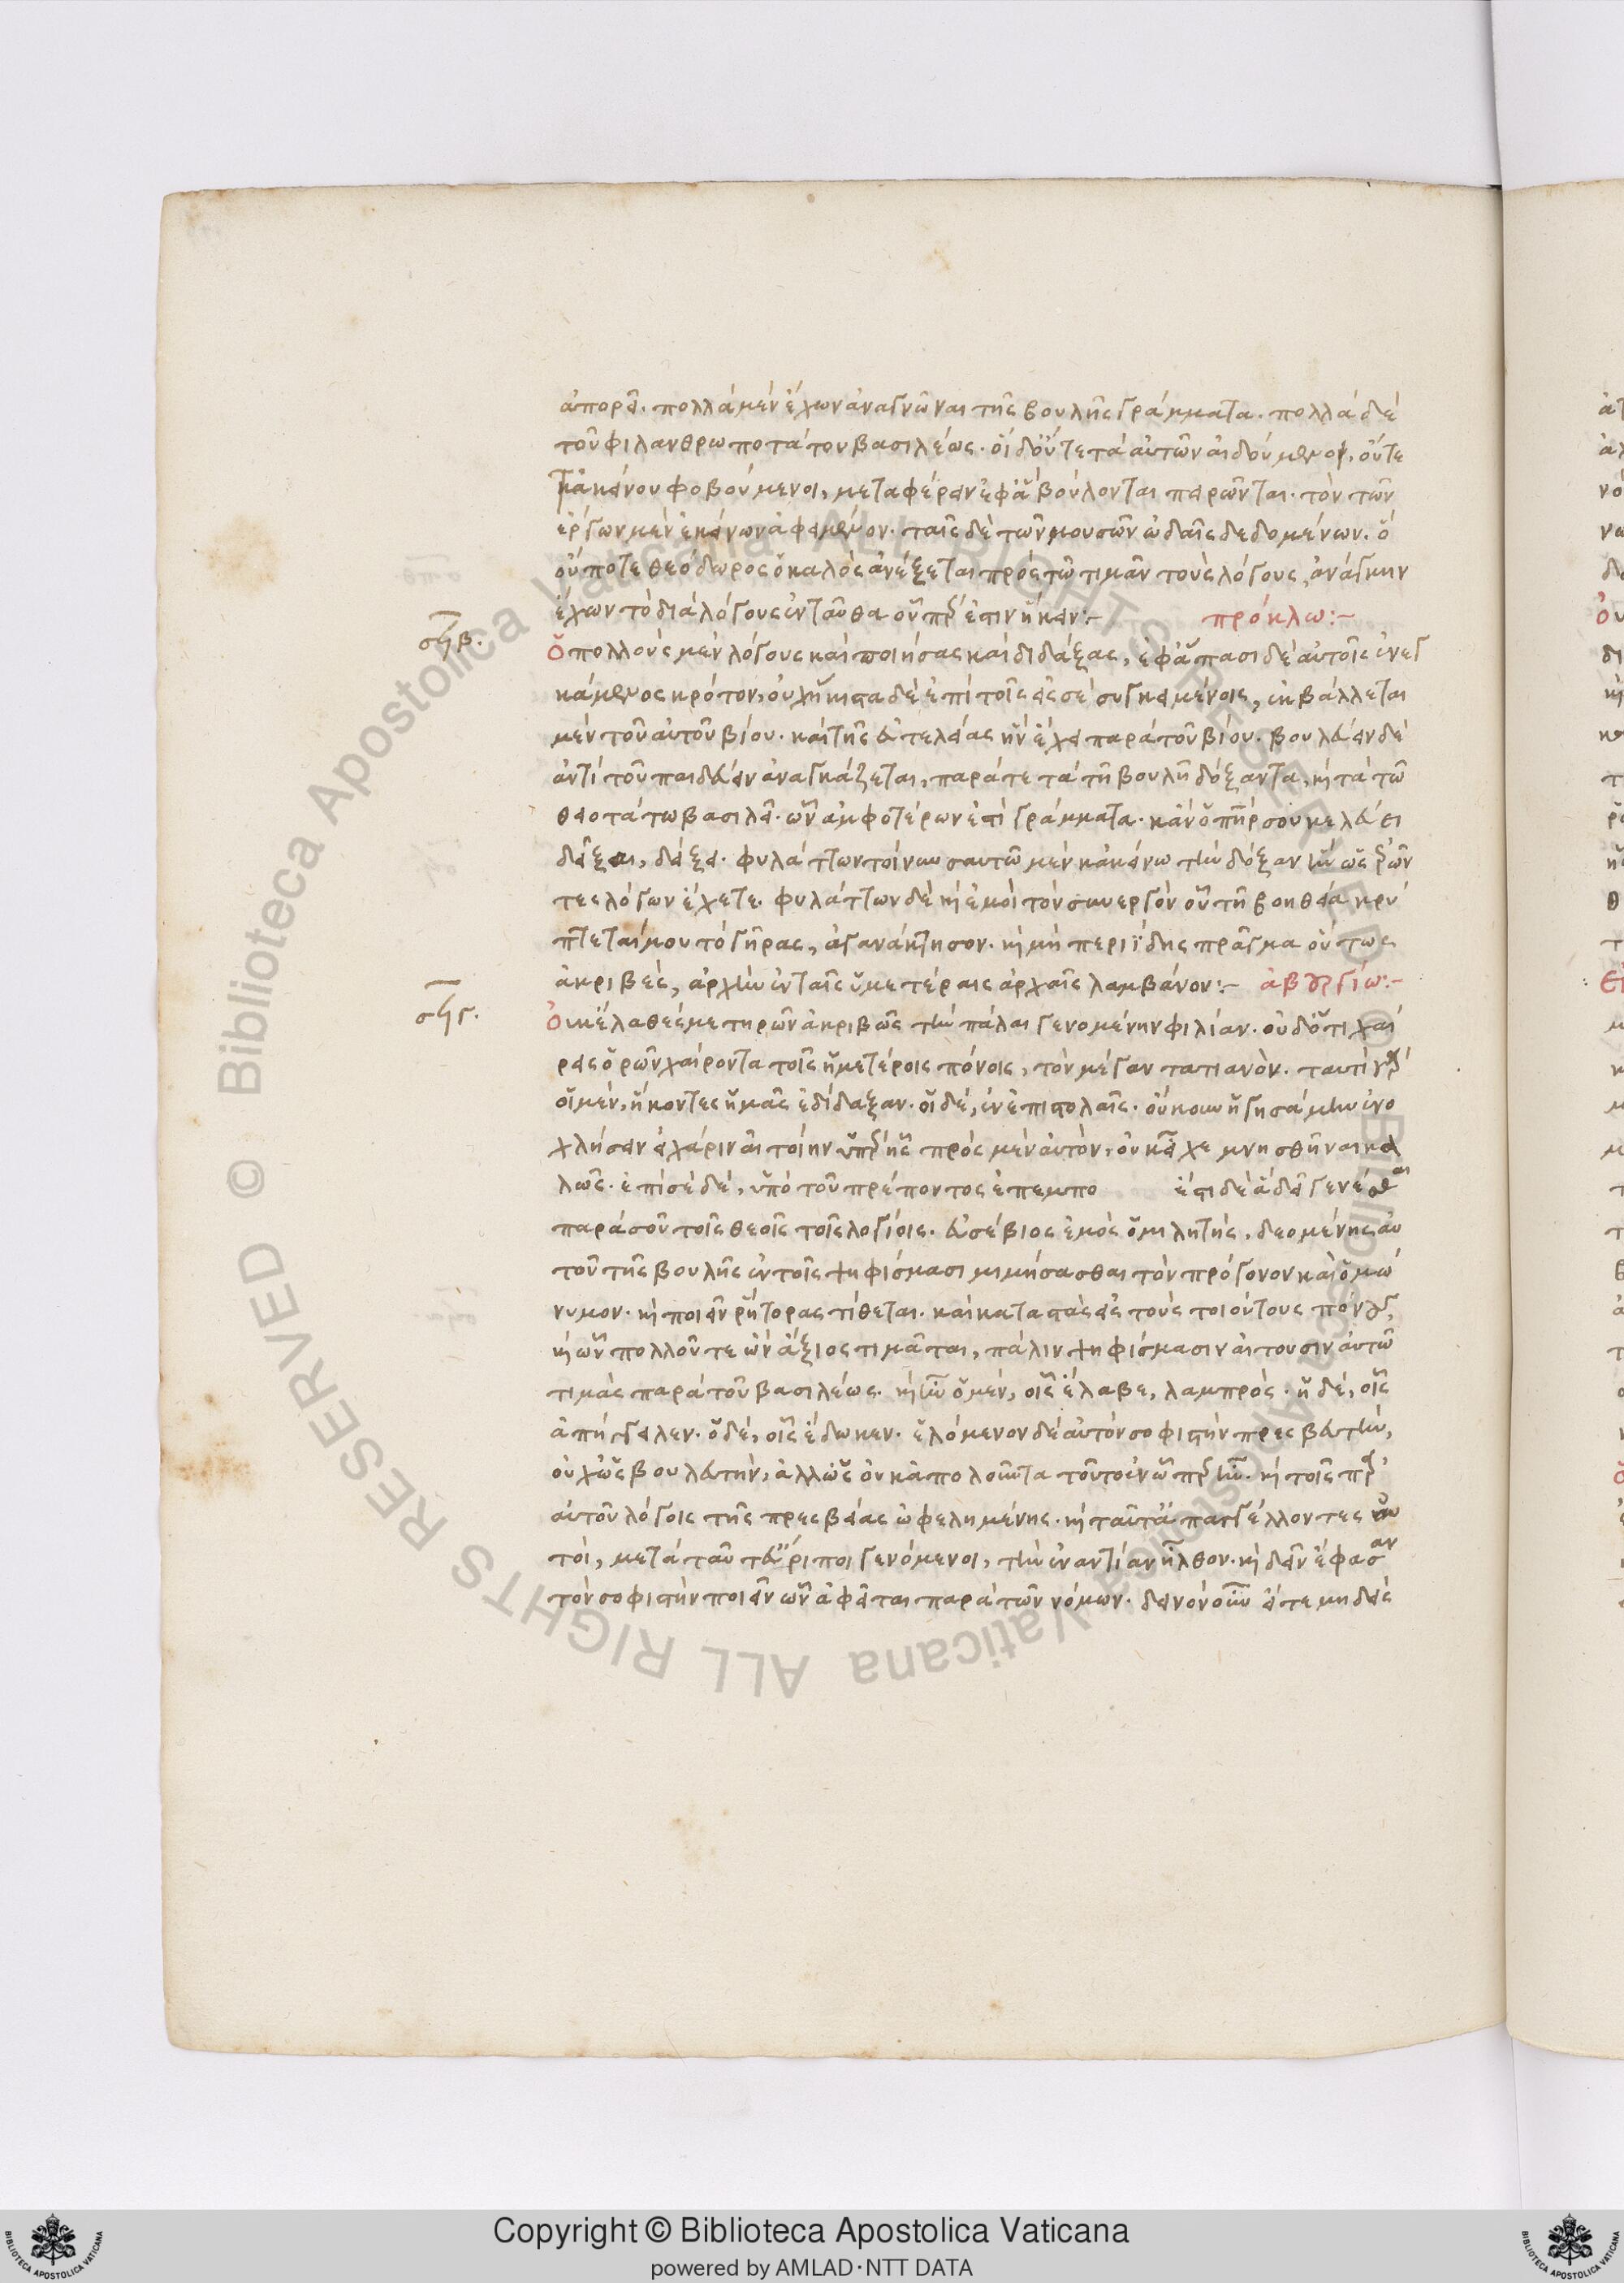 ἀπορεῖ. πολλὰ μὲν ἔχων ἀναγνῶναι τῆς βουλῆς γράμματα. πολλὰ δὲ
τοῦ φιλανθρωποτάτου βασιλέως. οἱ δ' οὔτε τὰ αὐτῶν αἰδούμενοι, οὔτε
τἀκείνου φοβούμενοι, μεταφέρειν ἐφ' ἃ βούλονται πειρῶνται. τὸν τῶν
ἔργων μὲν ἐκείνων ἀφειμένον. ταῖς δὲ τῶν μουσῶν ὠδαῖς δεδομένων. ὃ
οὔποτε θεόδωρος ὁ καλὸς ἀνέξεται πρὸς τῶ τιμᾶν τοὺς λόγους, ἀνάγκην
ἔχων τὸ διὰ λόγους ἐνταῦθα οὗπέρ ἐστιν ἥκειν:– πρόκλω:–
σξβ.
Ὁ πολλοὺς μὲν λόγους καὶ ποιήσας καὶ διδάξας, ἐφ' ἅπασι δὲ αὐτοῖς ἐνεγ
κάμενος κρότον, οὐχ ἥκιστα δὲ ἐπὶ τοῖς εἰς σὲ συγκειμένοις, ἐκβάλλεται
μὲν τοῦ αὐτοῦ βίου. καὶ τῆς ἀτελείας ἣν ἔχει παρὰ τοῦ βίου. βουλεύειν δὲ
ἀντὶ τοῦ παιδεύειν ἀναγκάζεται, παρά τε τὰ τῆ βουλῆ δόξαντα, καὶ τὰ τῶ
θειοτάτω βασιλεῖ. ὧν ἀμφοτέρων ἐστὶ γράμματα. κἂν ὁ πατήρ σου κελεύσῃ
δεῖξαι, δείξει. φυλάττων τοίνυν σαυτῶ μὲν κἀκείνω τὴν δόξαν ἣν ὡς ἐρῶν
τες λόγων ἔχετε. φυλάττων δὲ καὶ ἐμοὶ τὸν συνεργὸν οὗ τῆ βοηθεία κρύ
πτεταί μου τὸ γῆρας, ἀγανάκτησον. καὶ μὴ περιΐδης πρᾶγμα οὕτως
ἀκριβὲς, ἀρχὴν ἐν ταῖς ὑμετέραις ἀρχαῖς λαμβάνον:– ἀβουργίω:–
σξγ.
Οὐκ ἔλαθές με τηρῶν ἀκριβῶς τὴν πάλαι γενομένην φιλίαν. οὐδ' ὅτι χαί
ρεις ὁρῶν χαίροντα τοῖς ἡμετέροις πόνοις, τὸν μέγαν τατιανόν. ταυτὶ γὰρ
οἱ μὲν, ἥκοντες ἡμᾶς ἐδίδαξαν. οἱ δὲ, ἐν ἐπιστολαῖς. οὔκουν ἡγησάμην ἐνο
χλήσειν εἰ χάριν αἰτοίην ὑπὲρ ἧς πρὸς μὲν αὐτὸν, οὐκ εἶχε μνησθῆναι κα
λῶς. ἐπὶ σὲ δὲ, ὑπὸ τοῦ πρέποντος ἐπέμπο ἔστι δὲ ἃ δεῖ γενέσθαι
παρὰ σοῦ τοῖς θεοῖς τοῖς λογίοις. εὐσέβιος ἐμὸς ὁμιλητής, δεομένης αὐ
τοῦ τῆς βουλῆς ἐν τοῖς ψηφίσμασι μιμήσασθαι τὸν πρόγονον καὶ ὁμώ
νυμον. καὶ ποιεῖν ῥήτορας πείθεται. καὶ καταστὰς εἰς τοὺς τοιούτους πόνους,
καὶ ὢν πολλοῦ τε ὢν ἄξιος τιμᾶται, πάλιν ψηφίσμασιν αἰτοῦσιν αὐτῶ
τιμὰς παρὰ τοῦ βασιλέως. καὶ ἦν ὁ μὲν, οἷς ἔλαβε, λαμπρός. ἡ δὲ, οἷς
ἀπήγγειλεν. ὁ δὲ, οἷς ἔδωκεν. ἑλόμενον δὲ αὐτὸν σοφιστὴν πρεσβευτὴν,
οὐχ ὡς βουλευτήν, ἀλλ' ὡς οὐκ ἀπολοῦντα τοῦτο ἐν ὧπερ ἦν. καὶ τοῖς παρ'
αὐτοῦ λόγοις τῆς πρεσβείας ὠφελημένης. καὶ ταῦθ' ἃ παραγγέλλοντες
τοι, μετὰ ταῦτ' εὔριποι γενόμενοι, τὴν ἐναντίαν ἦλθον. καὶ δεῖν ἔφασαν
τὸν σοφιστὴν ποιεῖν ὧν ἀφεῖται παρὰ τῶν νόμων. δεινὸν οὖν εἴτε μηδεὶς